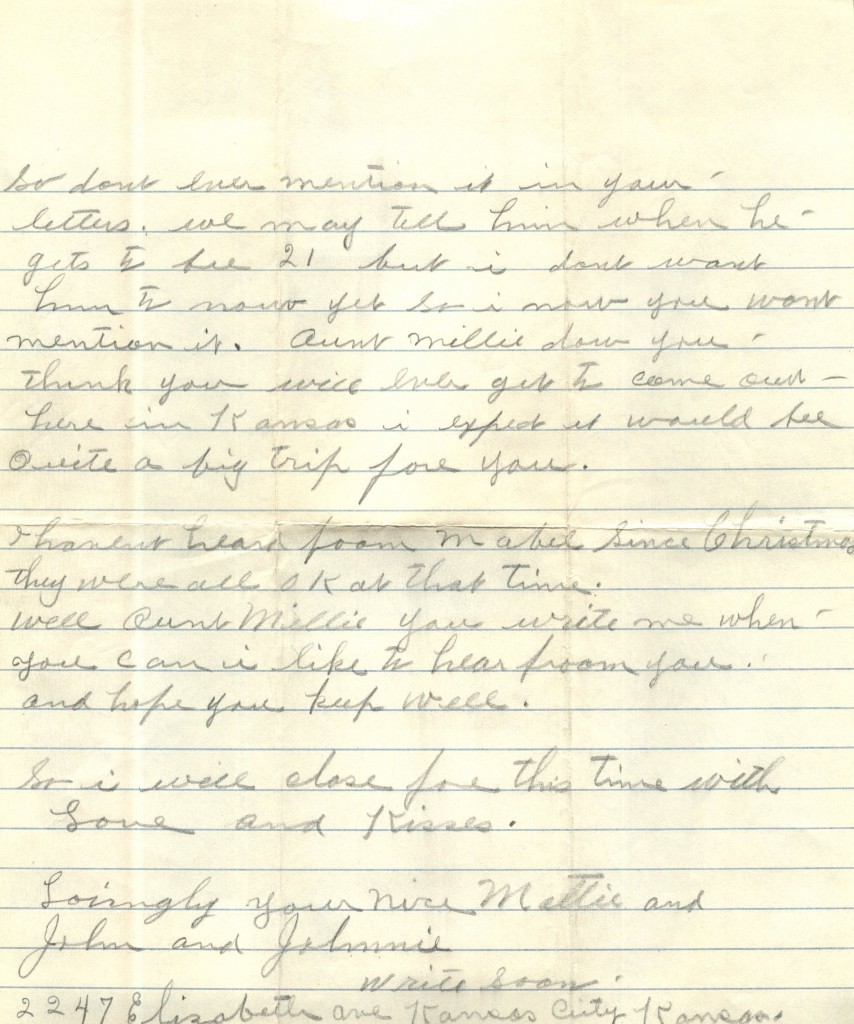 So dont ever mention it in your
letters. we may tell him when he
gets to bee 21 but i dont want
him to now yet so i now you wont
mention it. Aunt Millie dow you
think you will ever get to come out
here in Kansas i expect it would bee
Quite a big trip fore you.
I havent heard froom Mabel Since Christmas
they were all OK at that time.
well Aunt Millie you write me when
you can i like to hear froom you.
and hope you keep well.
So i will close for this time with
Love and Kisses.
Loingly your nice Mattie and
John and Johnnie
write soon.
2247 Elizabeth ave Kansas City Kansas.